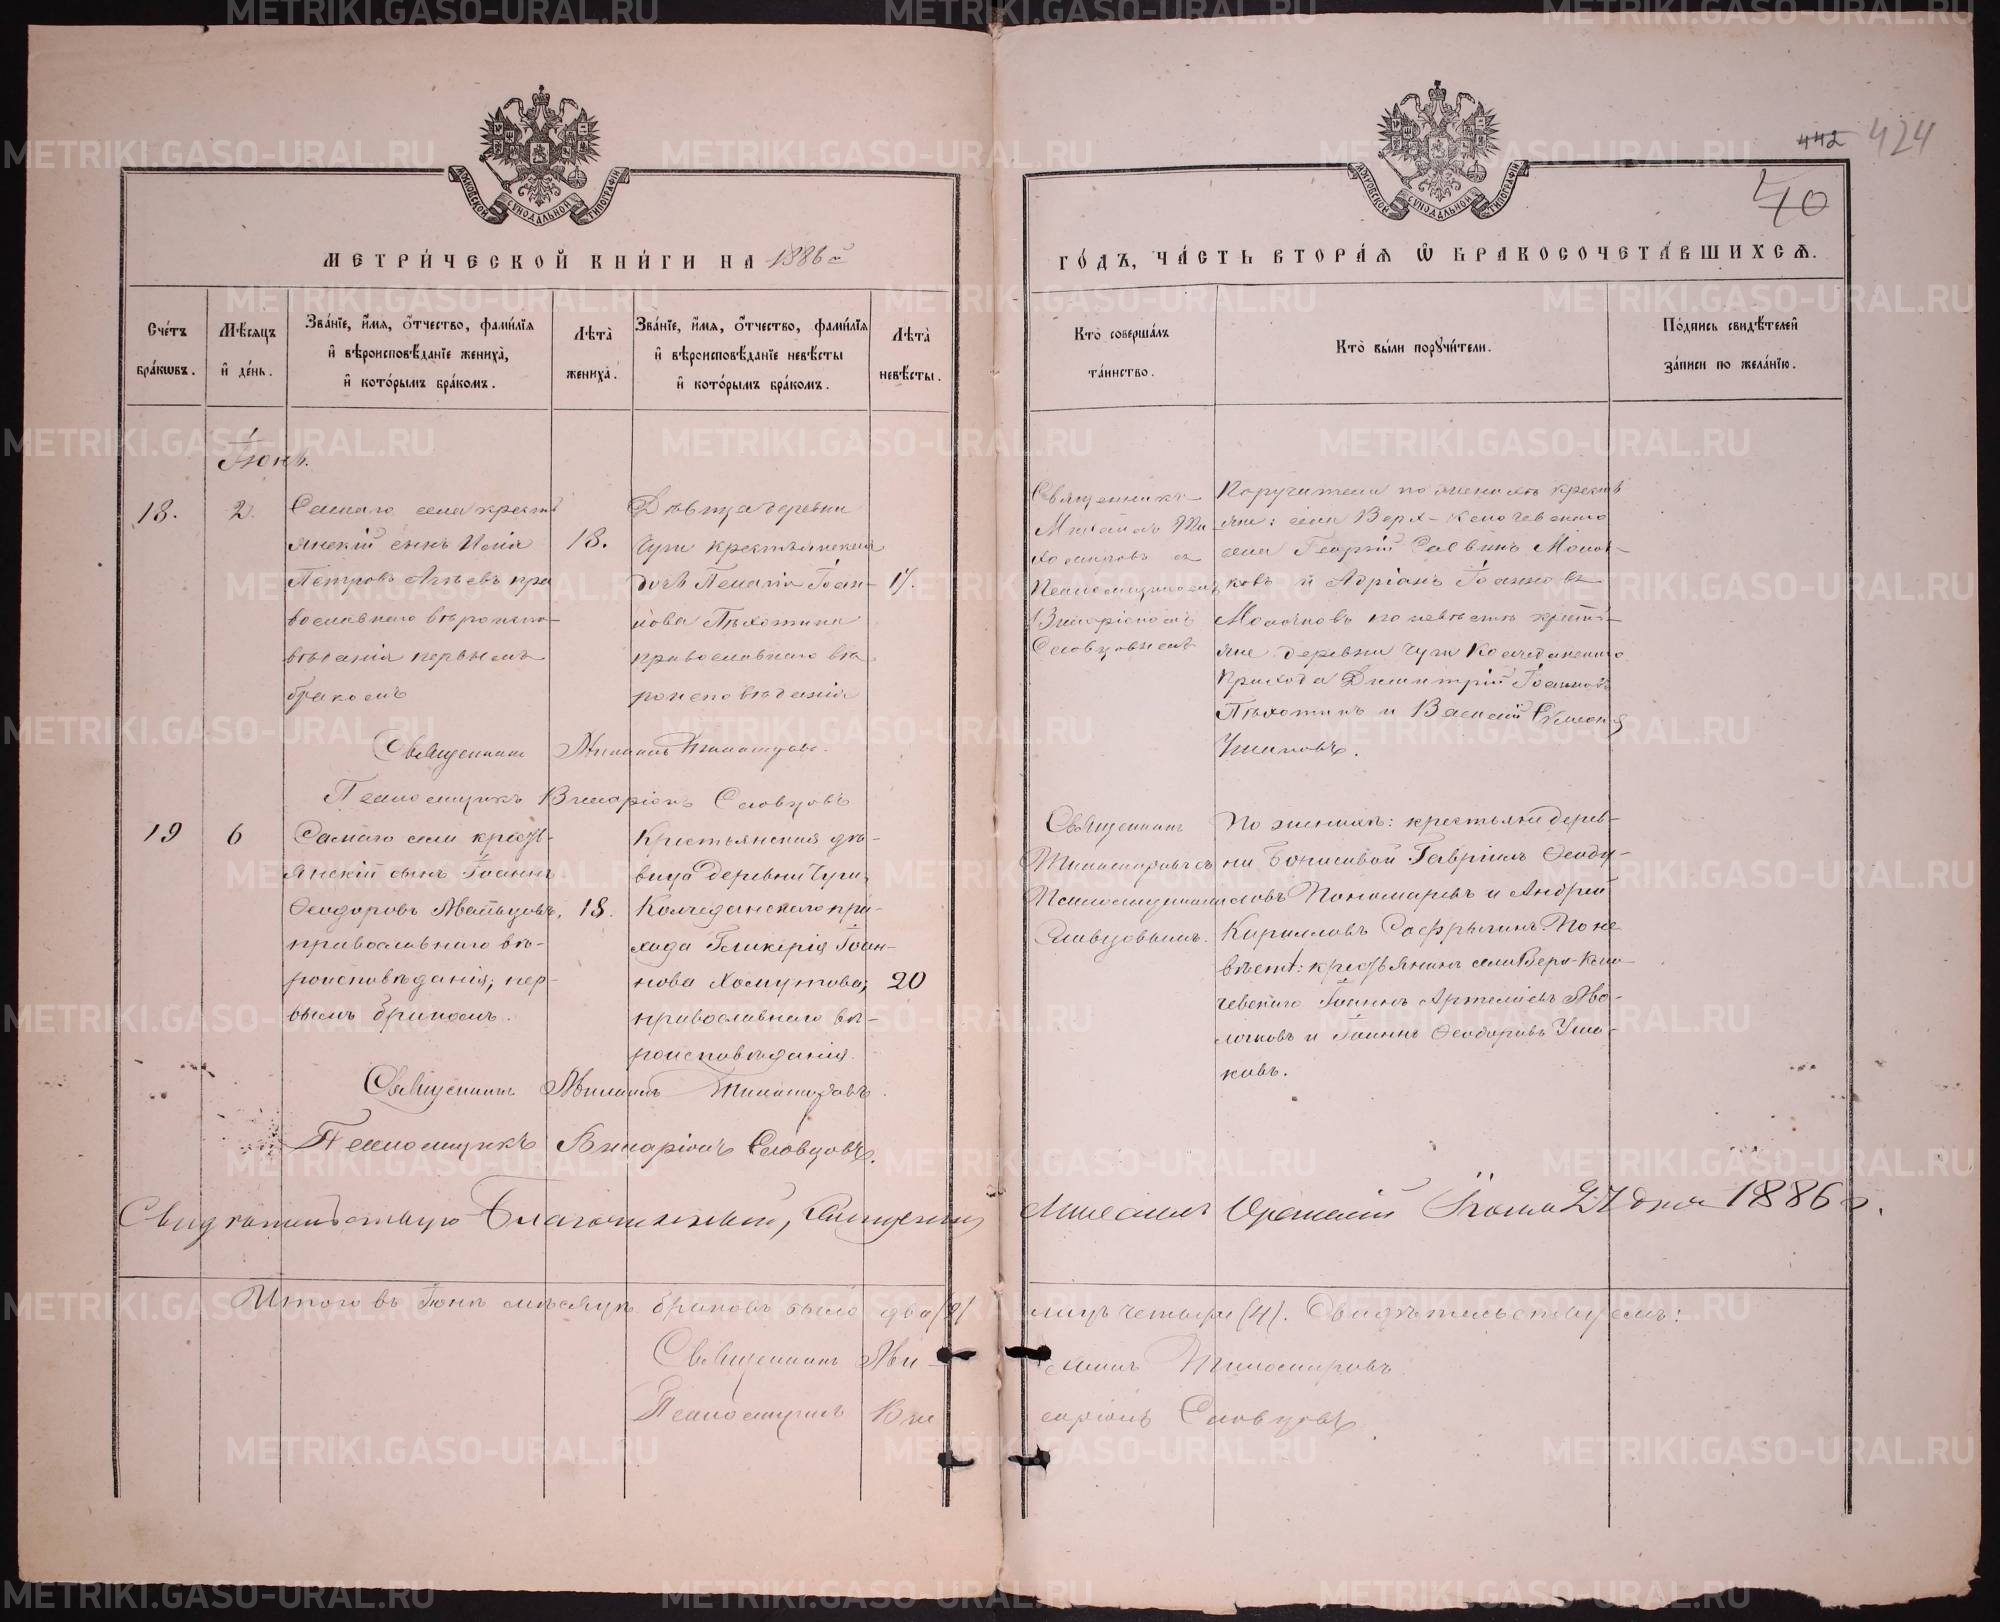 442 424
40
МЕТРИЧЕСКОЙ КНИГИ НА 1886й
ГОДЪ, ЧАСТЬ ВТОРАЯ Ѡ БРАКОСОЧЕТАВШИХСЯ.
Счетъ браковъ.
Мѣсяцъ и день.
Званіе, имя, отчество, фамилія и вѣроисповѣданіе жениха, и которымъ бракомъ.
Лѣта жениха.
Званіе, имя, отчество, фамилія и вѣроисповѣданіе невѣсты и которымъ бракомъ.
Лѣта невѣсты.
Кто совершалъ таинство.
Кто были поручители.
Подпись свидѣтелей записи по желанію.
Іюнь.
18.
2.
Самаго села кресть
янскій сынъ Илія
Петровъ
православнаго вѣроиспо-
вѣданія первымъ
бракомъ
18.
Дѣвица деревни
Чуги крестьянская
дочь Пелагія Іоан-
нова Пѣхотина
православнаго вѣ
роисповѣданія
17.
Священникъ
Михаилъ Ти
хомировъ съ
Псаломщикомъ
Виларіономъ
Словцовымъ
Поручители по женихѣ кресть
яне: села Верх-Ключевскаго
села Георгій Саввинъ Молоч-
ковъ и Адріанъ Іоанновъ
Молочковъ по невѣстѣ кресть-
яне деревни Чуги Колчеданскаго
прихода Димитрій Іоанновъ
Пѣхотинъ и Василій Симеоновъ
Ушаковъ.
Священникъ Михаилъ Тихомировъ.
Псаломщикъ Виларіонъ Словцовъ
19
6
Самаго села кресть-
янскій сынъ Іоаннъ
Ѳеодоровъ Мальцовъ,
православнаго вѣ-
роисповѣданія, пер-
вымъ бракомъ.
18.
Крестьянская дѣ-
вица деревни Чуги,
Колчеданскаго при-
хода Гликерія Іоан-
нова Хомутова,
православнаго вѣ-
роисповѣданія.
20
Священникъ
Тихомировъ съ
Псаломщикомъ
Словцовымъ.
По женихѣ: крестьяне дерев-
ни Борисовой Гавріилъ Ѳеоду-
ловъ Пономаревъ и Андрей
Кирилловъ Сафрыгинъ. По не
вѣстѣ: крестьянинъ села Верх-Клю-
чевскаго Іоаннъ Артемьевъ Мо-
лочковъ и Іоаннъ Ѳеодоровъ Уша-
ковъ.
Священникъ Михаилъ Тихомировъ.
Псаломщикъ Виларіонъ Словцовъ.
Свидѣтельствую Благочинный, Священникъ Михаилъ Іюня 27 дня 1886 г.
Итого въ Іюнѣ мѣсяцѣ браковъ было два (2) лицъ четыре (4). Свидѣтельствуемъ:
Священникъ Михаилъ Тихомировъ
Псаломщикъ Виларіонъ Словцовъ
METRIKI.GASO-URAL.RU